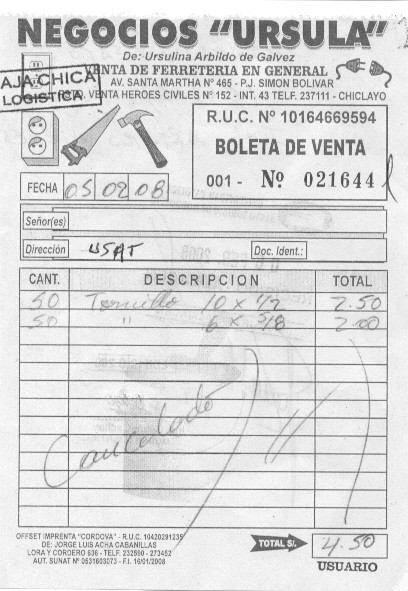 NEGOCIOS "URSULA"
De: Ursulina Arbildo de Galvez
VENTA DE FERRETERIA EN GENERAL
AV. SANTA MARTHA N° 465 - P.J. SIMON BOLIVAR
VENTA HEROES CIVILES N° 152 - INT. 43 TELF. 237111 - CHICLAYO
AJA CHICA
LOGISTICA
R.U.C. N° 10164669594
BOLETA DE VENTA
001 - N° 021644
FECHA 05 02 08
Señor(es)
Dirección USAT Doc. Ident.:
CANT. DESCRIPCION TOTAL
50 Tornillo 10 x 1/2 2.50
50 " 6 x 5/8 2.00
Cancelado
OFFSET IMPRENTA "CORDOVA" - R.U.C. 10420291235
DE: JORGE LUIS ACHA CABANILLAS
LORA Y CORDERO 636 - TELF. 232590 - 273452
AUT. SUNAT N° 0531603073 - F.I. 16/01/2008
TOTAL S/. 4.50
USUARIO